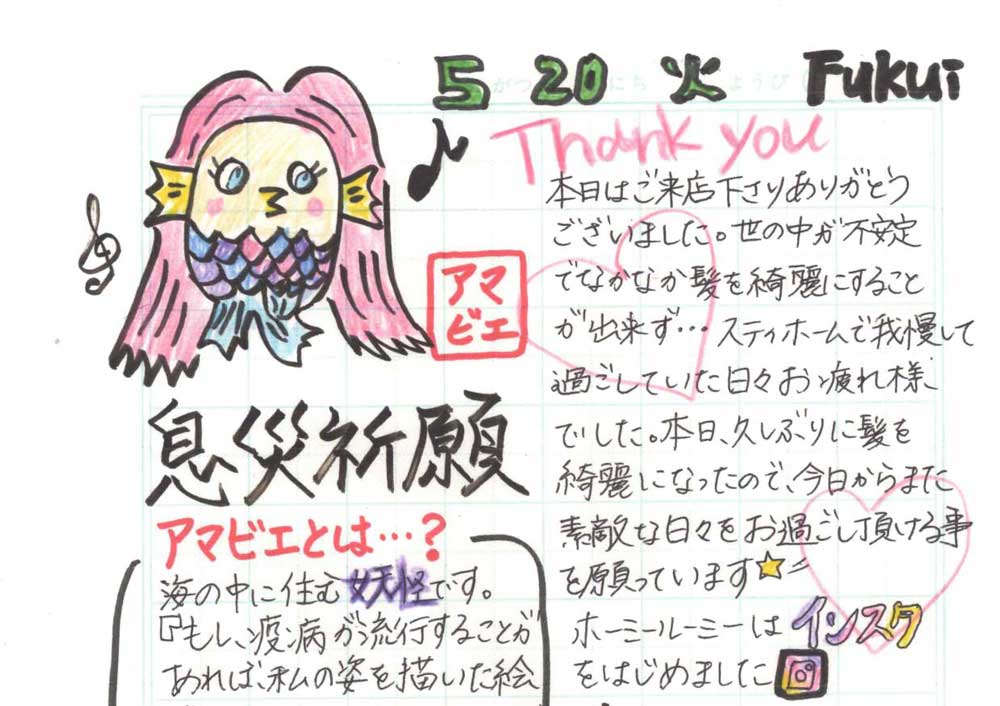 5 がつ 20 にち 火 ようび Fukui
Thank you
本日はご来店下さりありがとう
ございました。世の中が不安定
でなかなか髪を綺麗にすること
が出来ず… スティホームで我慢して
過ごしていた日々お疲れ様、
でした。本日、久しぶりに髪を
綺麗になったので、今日からまた
素敵な日々をお過ごし頂ける事
を願っています
ホーミールーミーは インスタ
をはじめました
アマ
ビエ
息災祈願
アマビエとは…?
海の中に住む妖怪です。
『もし、疫病が流行することが
あれば、私の姿を描いた絵